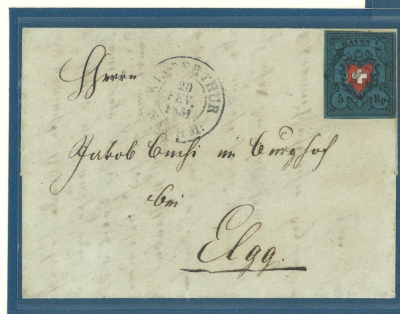 RAYON I
5 Rp.
WINTERTHUR
20
FEV.
1851
Herrn
Jakob Büchi im Burghof
bei
Elgg.